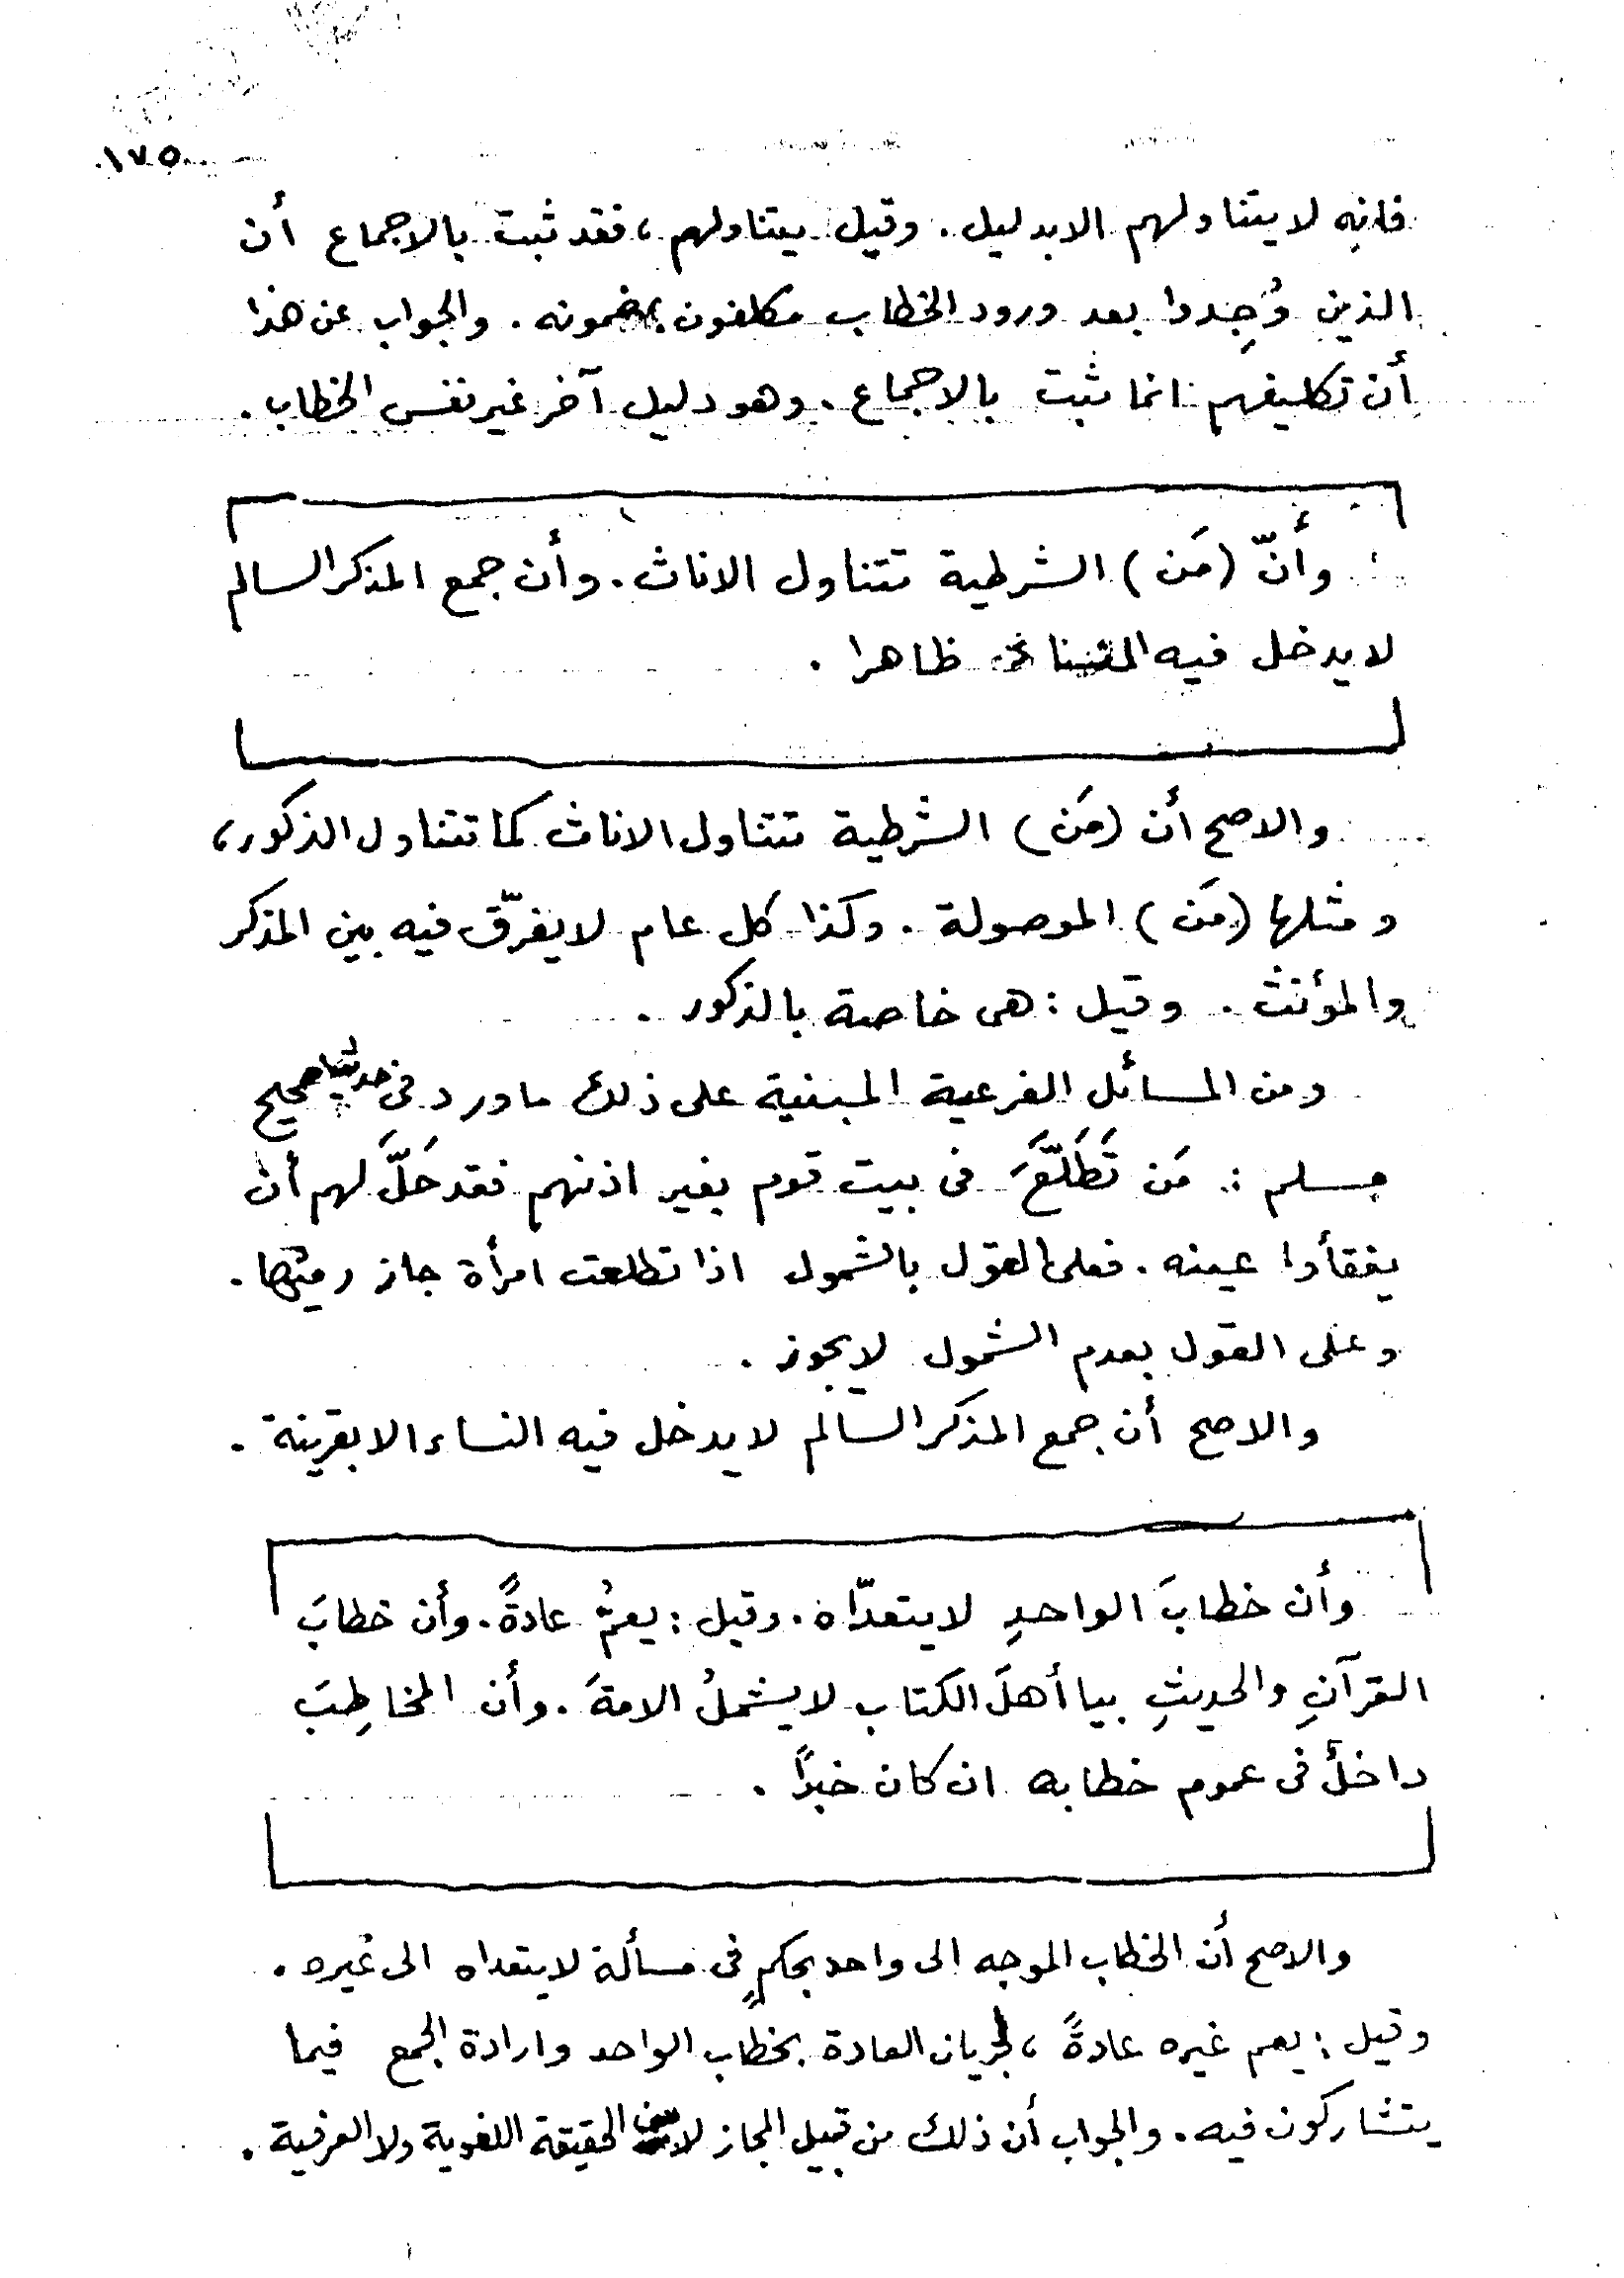 ١٧٥
فانه لا يتناولهم الا بدليل. وقيل يتناولهم، فقد ثبت بالاجماع أن
الذين وُجِدوا بعد ورود الخطاب مكلفون بمضمونه. والجواب عن هذا
أن تكليفهم انما ثبت بالاجماع. وهو دليل آخر غير نفس الخطاب.
وأنّ (مَن) الشرطية تتناول الاناث. وأن جمع المذكر السالم
لا يدخل فيه ظاهرا.
والاصح أن (مَن) الشرطية تتناول الاناث كما تتناول الذكور،
ومثلها (مَن) الموصولة. وكذا كل عام لا يفرّق فيه بين المذكر
والمؤنث. وقيل: هى خاصة بالذكور.
ومن المسائل الفرعية المبنية على ذلك ما ورد فى حديث صحيح
مسلم: مَن تَطَلَّعَ فى بيت قوم بغير اذنهم فقد حَلَّ لهم أن
يفقأوا عينه. فعلى القول بالشمول اذا تطلعت امرأة جاز رميُها.
وعلى القول بعدم الشمول لا يجوز.
والاصح أن جمع المذكر السالم لا يدخل فيه النساء الا بقرينة.
وأن خطابَ الواحدِ لا يتعدّاه. وقيل: يعمُّ عادةً. وأن خطابَ
القرآنِ والحديثِ بيا أهلَ الكتاب لا يشملُ الامةَ. وأن المخاطِبَ
داخلٌ فى عموم خطابه ان كان خبرًا.
والاصح أن الخطاب الموجه الى واحد بحكمٍ فى مسألة لا يتعداه الى غيره.
وقيل: يعم غيره عادةً، لجريان العادة بخطاب الواحد وارادة الجمع فيما
يتشاركون فيه. والجواب أن ذلك من قبيل المجاز لا من الحقيقة اللغوية ولا العرفية.